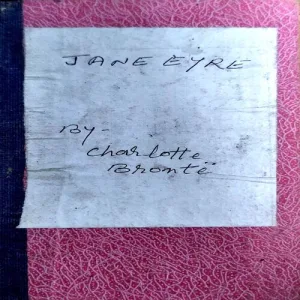 JANE EYRE
By-
Charlotte
Brontë